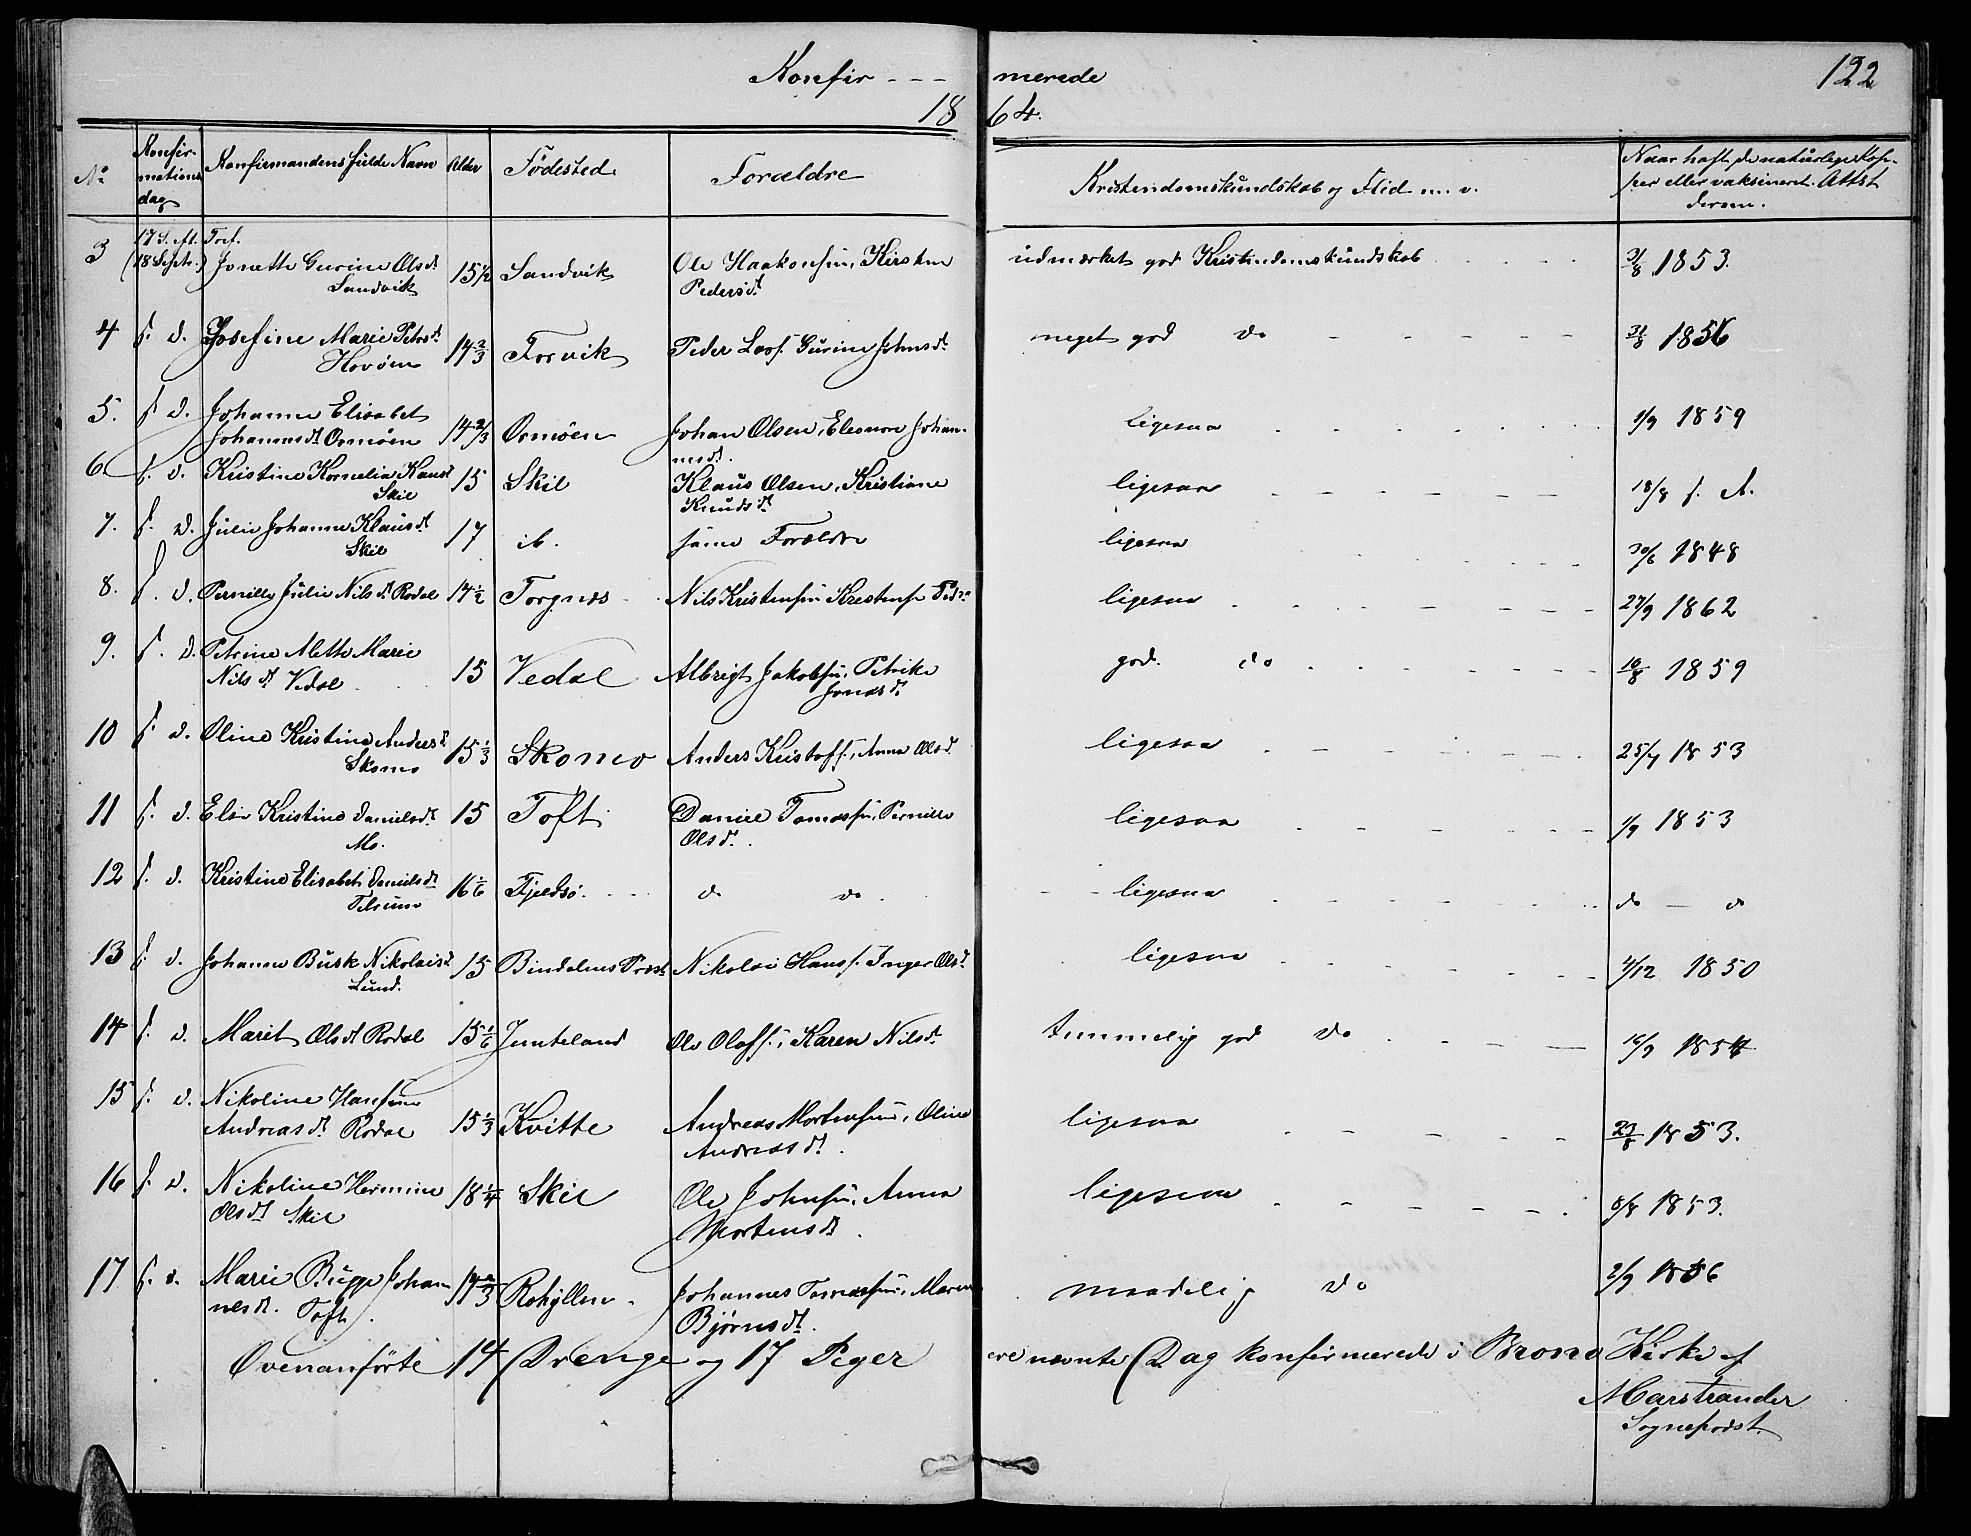 Konfir - - - merede 122
18 64.
No Konfir-mations dag Konfirmandens fulde Navn Alder Fødested Forældre Kristendomskundskab og Flid m. v. Naar haft de naturlige Kop-per eller vaksineret. Attst derom.
3 17 S. (18 Septr.) Jonette Gurine Olsdt. Sandvik 15 1/2 Sandvik Ole Haakonsen, Kirsten Pedersdt. udmærket god Kristendomskundskab 3/8 1853.
4 s. d. Josefine Marie Petersdt. Hovøen 14 2/3 Forvik Peder Gurine Johnsdt. meget god do 31/8 1856
5. s. d. Johanne Elisabet Johannesdt. Ormøen 14 2/3 Ormøen Johan Olsen, Eleonore Johan-nesdt. ligesaa 1/9 1859
6 s. d. Kristine Kornelia Skil 15 Skil Klaus Olsen, Kristiane Knudsdt. ligesaa 18/8 s. A.
7. s. d. Julie Johanne Klausdt. Skil 17 ib. samme Forældre ligesaa 30/6 1848
8. s. d. Pernille Julie Nilsdt. Rodal 14 1/2 Torgnes Nils Kristensen ligesaa 27/9 1862
9. s. d. Petrine Alette Marie Nilsdt. Vedal 15 Vedal Albrigt Jakobsen, Petrike Jonasdt. god. do 10/8 1859
10 s. d. Oline Kristine Andersdt. Skomo 15 1/3 Skomo Anders Kristoffs., Anna Olsdt. ligesaa 25/7 1853
11 s. d. Else Kristine Danielsdt. Mo. 15 Toft Daniel Tomassen, Pernille Olsdt. ligesaa 1/9 1853
12 s. d. Kristine Elisabet Danielsdt. 16 1/6 Fjeldsø. do do ligesaa do - do
13 s. d. Johanne Busk Nikolaisdt. Lund. 15 Bindalens Præst Nikolai Hanss. Inger Olsdt. ligesaa 4/12 1850
14 s. d. Marit Olsdt. Rodal 15 1/6 Jemteland Ole Olafs., Karen Nilsdt. temmelig god do 16/9 1854
15 s. d. Nikoline Hansine Andreasdt. Rodal 15 1/3 Kvitte Andreas Mortensen, Oline Andreasdt. ligesaa 23/8 1853.
16 s. d. Nikoline Hermine Olsdt. Skil 18 1/4 Skil Ole Johnsen, Anna Mortensdt. ligesaa 8/8 1853.
17 s. d. Marie Bugge Johan-nesdt. Toft. 14 2/3 Rohyllen Johannes Tomassen, Maren Bjørnsdt. maadelig do 2/9 1856
Ovenanførte 14 Drenge og 17 Piger ere nævnte Dag konfirmerede i Brønø Kirke af
Marstrander
Sogneprest.